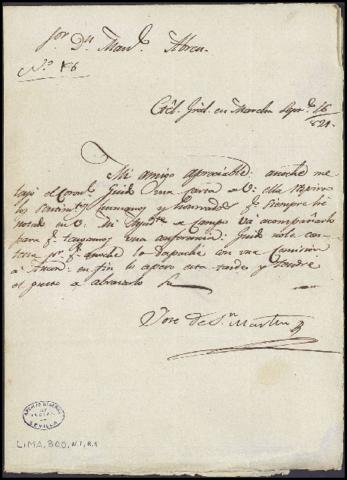 Sor. Dn. Manl. Abreu.
No. 86
Ctel. Gral. en Marcha
16
821.
Mi amigo apreciable: anoche me
leyó el Coronl. Guido una carta de V: ella respira
los sentimtos. humanos y honrrados qe. siempre he
notado en V. Mi Ayudte. de Campo va acompañarlo
para qe. tengamos una conferencia. Guido no le con-
testa pr. qe. anoche lo despaché con una Comision
a en fin lo espero esta tarde y tendré
el gusto de abrazarlo
Jose de Sn. Martin
ARCHIVO GENERAL
DE
INDIAS
SEVILLA
LIMA, 800, N.1, R.1